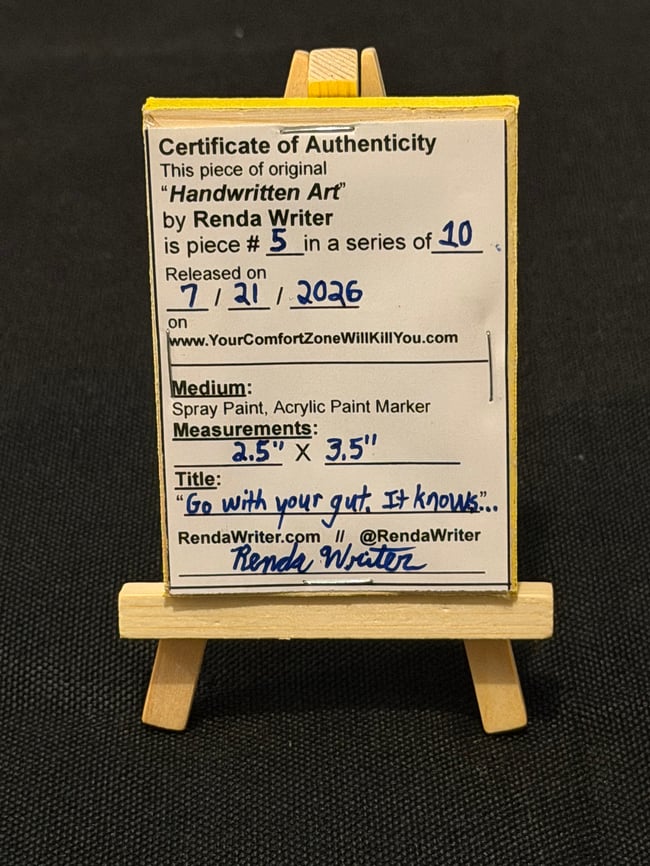 Certificate of Authenticity
This piece of original
“Handwritten Art”
by Renda Writer
is piece # 5 in a series of 10
Released on
7 / 21 / 2026
on
www.YourComfortZoneWillKillYou.com
Medium:
Spray Paint, Acrylic Paint Marker
Measurements:
2.5" X 3.5"
Title:
“Go with your gut. It knows”...
RendaWriter.com // @RendaWriter
Renda Writer